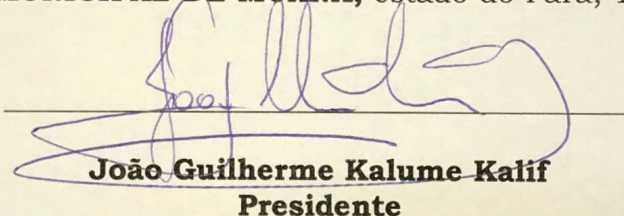 estado do Pará,
João Guilherme Kalume Kalif
Presidente